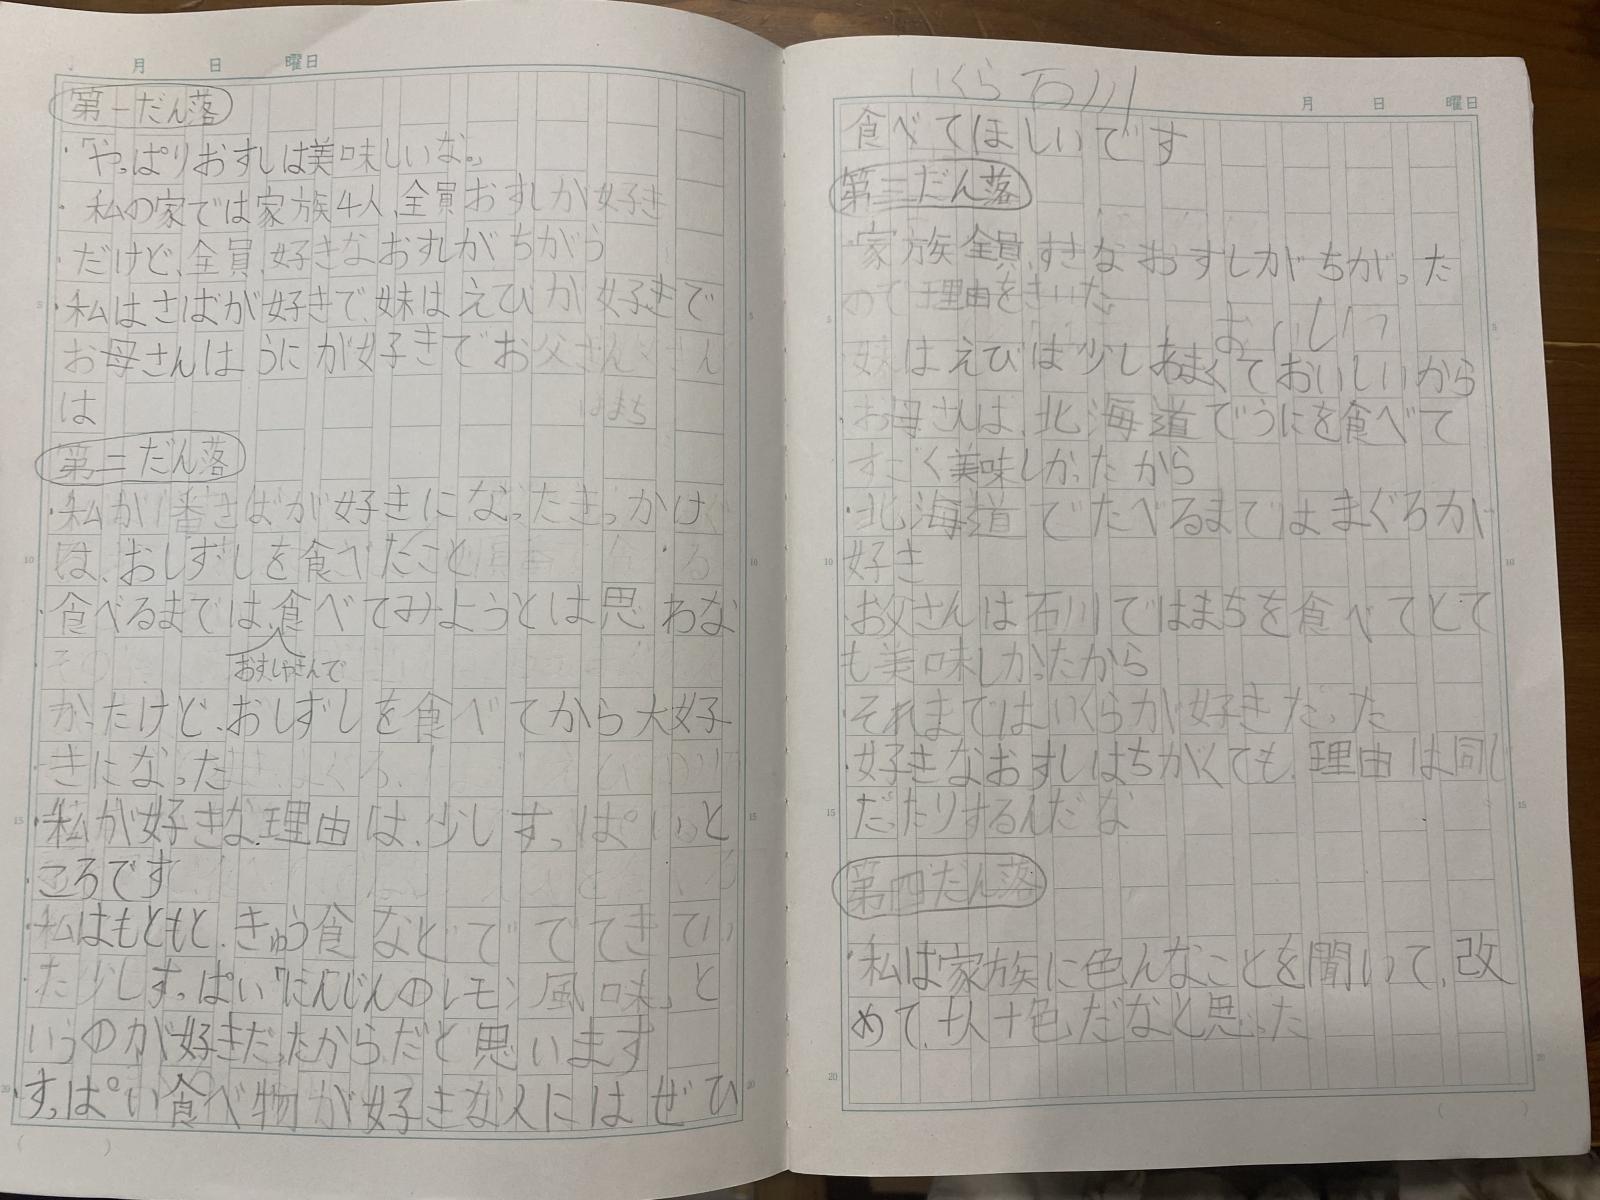 月 日 曜日
第一だん落
・「やっぱりおすしは美味しいな。」
・私の家では家族4人、全員おすしが好き
だけど、全員、好きなおすしがちがう
・私はさばが好きで、妹はえびが好きで
お母さんはうにが好きでお父さん
は はまち
第二だん落
・私が1番さばが好きになったきっかけ
は、おしずしを食べたこと
・食べるまでは、食べてみようとは思わな
おすしやさんで
かったけど、おしずしを食べてから大好
きになった
・私が好きな理由は、少しすっぱいと
ころです
私はもともと、きゅう食などででてきてい
た少しすっぱい「にんじんのレモン風味」と
いうのが好きだったからだと思います
・すっぱい食べ物が好きな人にはぜひ
いくら 石川
月 日 曜日
食べてほしいです
第三だん落
・家族全員、すきなおすしがちがった
ので理由をきいた
おいしい
妹はえびは少しあまくておいしいから
・お母さんは、北海道でうにを食べて
すごく美味しかったから
・北海道でたべるまではまぐろが
好き
・お父さんは石川ではまちを食べてとて
も美味しかったから
それまではいくらが好きだった
・好きなおすしはちがくても、理由は同じ
だったりするんだな
第四だん落
・私は家族に色んなことを聞いて、改
めて、十人十色だなと思った